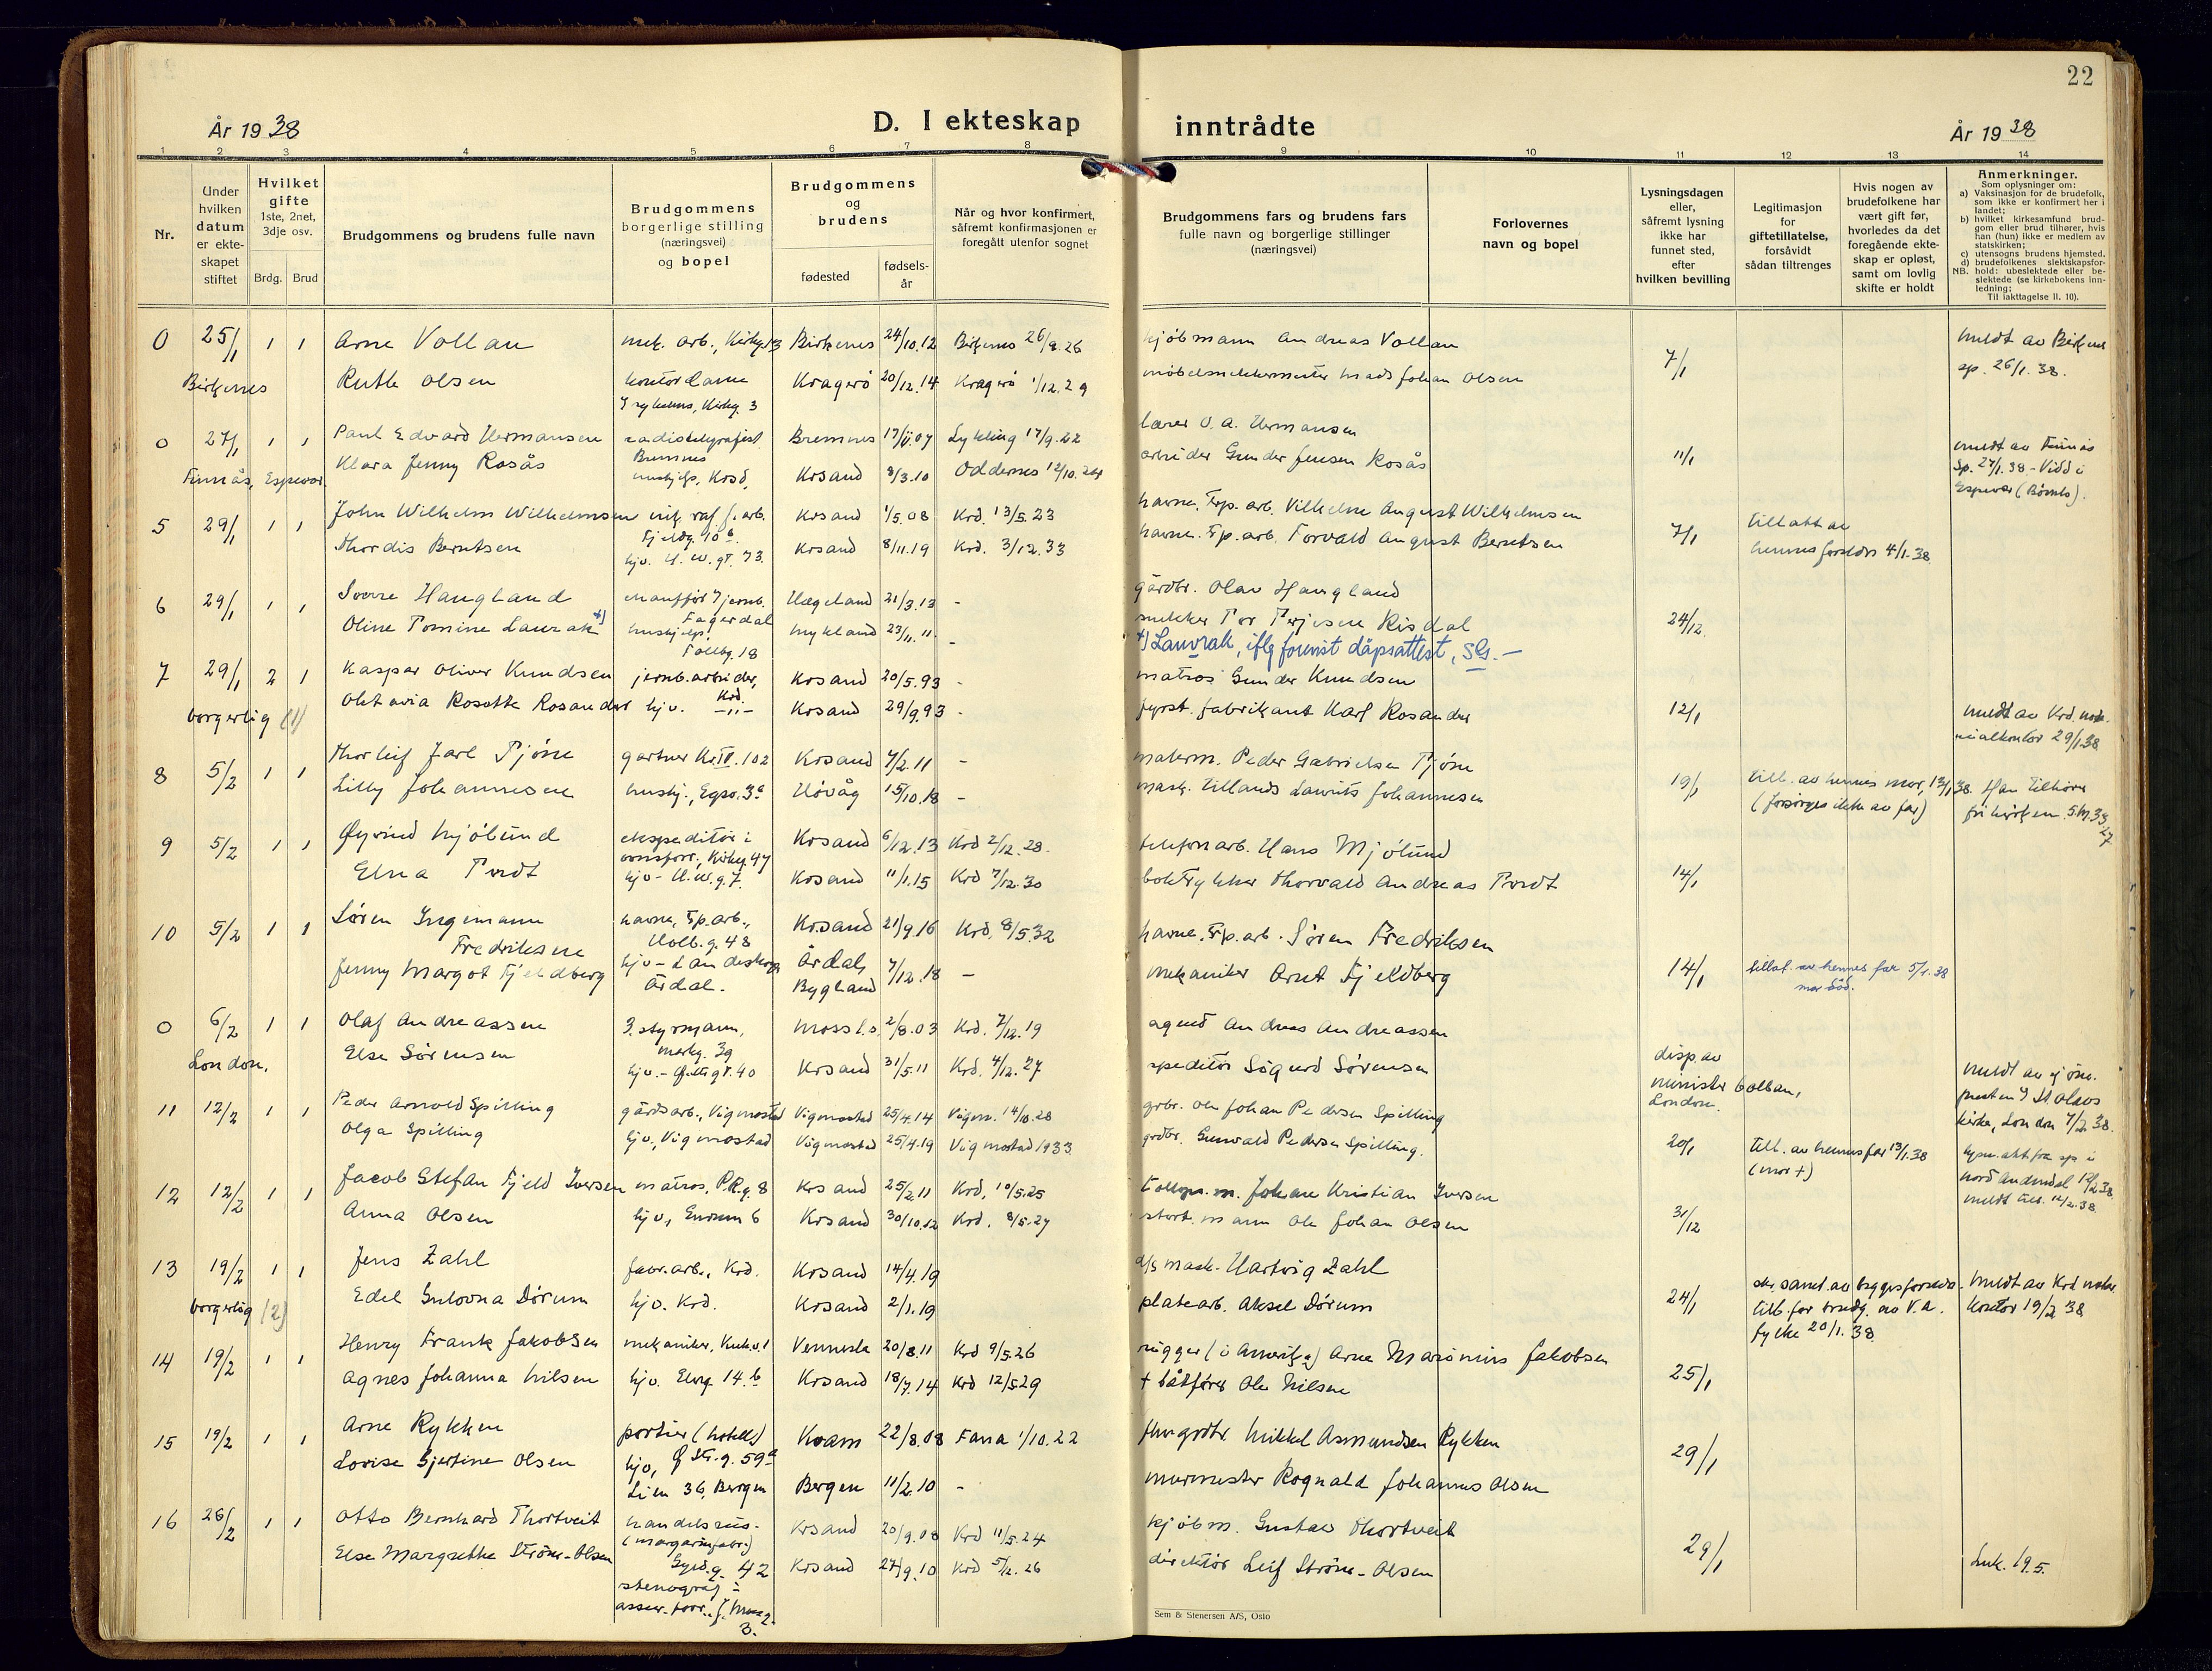 22
År 1938
D. I ekteskap
inntrådte
År 1938
1 2 3 4 5 6 7 8 9 10 11 12 13 14
Nr.
Under hvilken datum er ekteskapet stiftet
Hvilket gifte
1ste, 2net, 3dje osv.
Brdg. Brud
Brudgommens og brudens fulle navn
Brudgommens borgerlige stilling (næringsvei) og bopel
Brudgommens og brudens
fødested
fødselsår
Når og hvor konfirmert, såfremt konfirmasjonen er foregått utenfor sognet
Brudgommens fars og brudens fars fulle navn og borgerlige stillinger (næringsvei)
Forlovernes navn og bopel
Lysningsdagen eller, såfremt lysning ikke har funnet sted, efter hvilken bevilling
Legitimasjon for giftetillatelse, forsåvidt sådan tiltrenges
Hvis nogen av brudefolkene har vært gift før, hvorledes da det foregående ekteskap er opløst, samt om lovlig skifte er holdt
Anmerkninger.
Som oplysninger om:
a) Vaksinasjon for de brudefolk, som ikke er konfirmert her i landet;
b) hvilket kirkesamfund brudgom eller brud tilhører, hvis han (hun) ikke er medlem av statskirken;
c) utensogns brudens hjemsted.
d) brudefolkenes slektskapsforhold: ubeslektede eller beslektede (se kirkebokens innledning;
NB.
Til iakttagelse II. 10).
0 25/1 1 1 Arne Vollan mek. arb., Kirkeg. 3 Birkenes 24/10.12 Birkenes 26/9.26 kjøbmann Andreas Vollan 7/1 meldt av Birkenes
Birkenes Ruth Olsen kontordame Kragerø 20/12.14 Kragerø 1/12.29 møbelsnekkermester Mads Johan Olsen sp. 26/1.38.
Kirkeg. 3
0 27/1 1 1 Paul Edvard Hermansen radiotelegrafist Bremnes 17/ .07 Lykling 17/9.22 lærer O. A. Hermansen 11/1 meldt av Finnås
Bremnes
Finnås, Espevær. Klara Jenny Rosås hushjelp, Krsd, Krsand 8/3.10 Oddernes 12/10.24 arbeider Gunder Jensen Rosås sp. 27/1.38 - Viet i
Espevær (Bømlo).
5 29/1 1 1 John Wilhelm Wilhelmsen nik. raf. f. arb. Krsand 1/5.08 Krd. 13/5.23 havne. Trp. arb. Vilhelm August Wilhelmsen 7/1 tillatt av
Fjeldg. 10b.
Thordis Berntsen hjv. H. W. gt. 73. Krsand 8/11.19 Krd. 3/12.33 havn. Tp. arb. Torvald August Berntsen hennes foreldre 4/1.38
6 29/1 1 1 Sverre Haugland Hægeland 21/3.13 - gårdbr. Olav Haugland 24/12.
Fagerdal
Oline Tomine Laurak +) hushjelp. Mykland 23/11.11. - snekker Tor Terjesen Risdal
Tollbg. 18
+) Lauvrak, iflg fornist dåpsattest, SG. -
7 29/1 2 1 Kaspar Oliver Knudsen jernb. arbeider, Krd. Krsand 20/5.93 - matros Gunder Knudsen 12/1 meldt av Krd. noto-
borgerlig (1) Oktavia Rosette Rosander hjv. -"- Krsand 29/9.93 - fyrst. fabrikant Karl Rosander rialkontor 29/1.38
8 5/2 1 1 Thorleif Jarl Tjöm gartner Kr. IV. 102 Krsand 7/2.11 - malerm. Peder Gabrielsen Tjöm 19/1 till. av hennes mor, 13/1 38. Han tilhører
Lilly Johannesen hushj., Egsv. 3a Høvåg 15/10.18 - mask. tillands Laurits Johannesen (forsørges ikke av far) frikirken. S.M. 33
9 5/2 1 1 Øyvind Mjölund ekspeditør i Krsand 6/12.13 Krd 2/12.28. telefonarb. Hans Mjölund 14/1
Kirkeg. 47
Elna Tvedt hjv- H. W. g. 7. Krsand 11/1.15 Krd 7/12.30 boktrykker Thorvald Andreas Tvedt
10 5/2 1 1 Søren Ingemann havne, Tp. arb., Krsand 21/9.16 Krd, 8/5.32 havne. Trp. arb. Søren Fredriksen
Fredriksen Holb. g. 48
Jenny Margot Fjeldberg hjv- Landeskogen Årdal, Bygland 7/12.18 - mekaniker Arnt Fjeldberg 14/1 tillat. av hennes far 5/1.38
Årdal. mor død.
0 6/2 1 1 Olaf Andreassen 3. styrmann, Moss l.s. 2/8.03 Krd. 7/12.19 agent Andreas Andreassen disp. av
Markg. 39
London. Else Sörensen hjv.- Ø. Str. gt. 40 Krsand 31/5.11 Krd. 4/12.27 speditør Sigurd Sörensen minister Colban, London. meldt av sjöm.
presten i St. Olavs
kirke, London 7/2.38.
11 12/2 1 1 Peder Arnold Spilling gårdsarb., Vigmostad Vigmostad 25/4.14 Vigm. 14/10.28 grbr. Ole Johan Pedersen Spilling 20/1 till. av hennes far 13/1.38
Olga Spilling hjv, Vigmostad Vigmostad 25/4.19 Vigmostad 1933 grdbr. Gunvald Pedersen Spilling. (mor +)
12 12/2 1 1 Jacob Stefan Fjeld Iversen matros, P.R.g. 8 Krsand 25/2.11 Krd, 10/5.25 tollop. m. Johan Kristian Iversen 31/12 lysn. att. fra sp i
Nord Audnedal 12/2 38.
Anna Olsen hjv, Enrum 6 Krsand 30/10.12 Krd. 8/5.27 stort. mann Ole Johan Olsen
13 19/2 1 1 Jens Zahl fabr. arb., Krd. Krsand 14/4.19 d/s mask. Hartvig Zahl 24/1 skr. samt. av begges foreldre. Meldt av Krd notar
borgerlig (2) Edel Gulovna Dörum hjv. Krd. Krsand 2/1.19 platearb. Aksel Dörum till. for brudg. av V. A. kontor 19/2 38
fylke 20/1.38
14 19/2 1 1 Henry Frank Jakobsen mekaniker, Vennesla 20/8.11 Krd 9/5.26 rigger (i Amerika) Arne Marinius Jakobsen 25/1
Agnes Johanna Nilsen hjv. Elvg. 14.b Krsand 18/7.14 Krd 12/5.29 + båtfører Ole Nilsen
15 19/2 1 1 Arne Rykken portier (hotell) Kvam 22/8.08 Fana 1/10.22 fhv. grdbr. Mikkel Asmundsen Rykken 29/1
Ø Str. g. 59a
Lovise Gjertine Olsen hjv, Lien 36, Bergen Bergen 11/2.10 - murmester Rognald Johannes Olsen
16 26/2 1 1 Otto Bernhard Thortveit handelsreis. Krsand 20/9.08 Krd 11/5.24 kjøbm. Gustav Thortveit 29/1
(margarinfabr.)
Gyld. g. 42
Else Margrethe Ström-Olsen stenograf i Krsand 27/9.10 Krd 5/2.26 direktør Leif Ström-Olsen Luk. 19.5.
3.
Sem & Stenersen A/S, Oslo